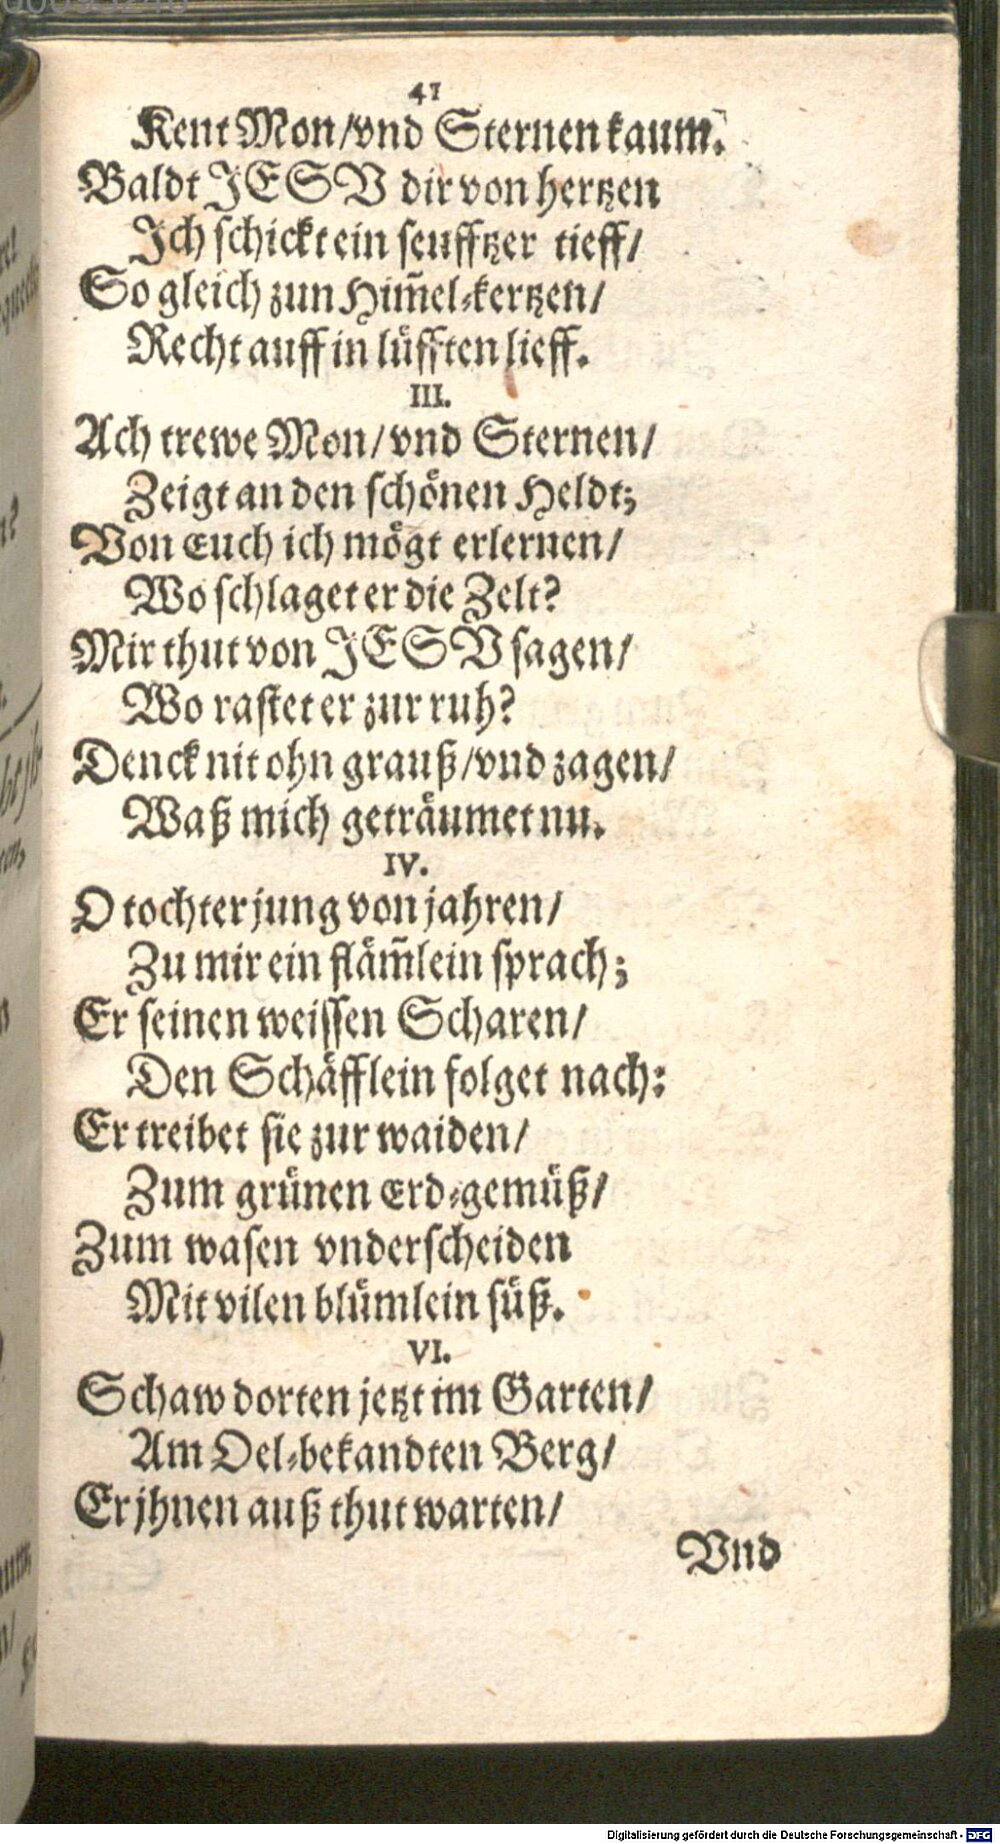 41
Kent Mon/vnd Sternen kaum.
Baldt JESV dir von hertzen
Ich schickt ein seufftzer tieff/
So gleich zun Him̃el-kertzen/
Recht auff in lüfften lieff.
III.
Ach trewe Mon/vnd Sternen/
Zeigt an den schönen Heldt;
Von Euch ich mögt erlernen/
Wo schlaget er die Zelt?
Mir thut von JESV sagen/
Wo rastet er zur ruh?
Denck nit ohn grauß/vnd zagen/
Waß mich geträumet nu.
IV.
O tochter jung von jahren/
Zu mir ein fläm̃lein sprach;
Er seinen weissen Scharen/
Den Schäfflein folget nach:
Er treibet sie zur waiden/
Zum grünen Erd-gemüß/
Zum wasen vnderscheiden
Mit vilen blümlein süß.
VI.
Schaw dorten jetzt im Garten/
Am Oel-bekandten Berg/
Er jhnen auß thut warten/
Vnd
Digitalisierung gefördert durch die Deutsche Forschungsgemeinschaft - DFG